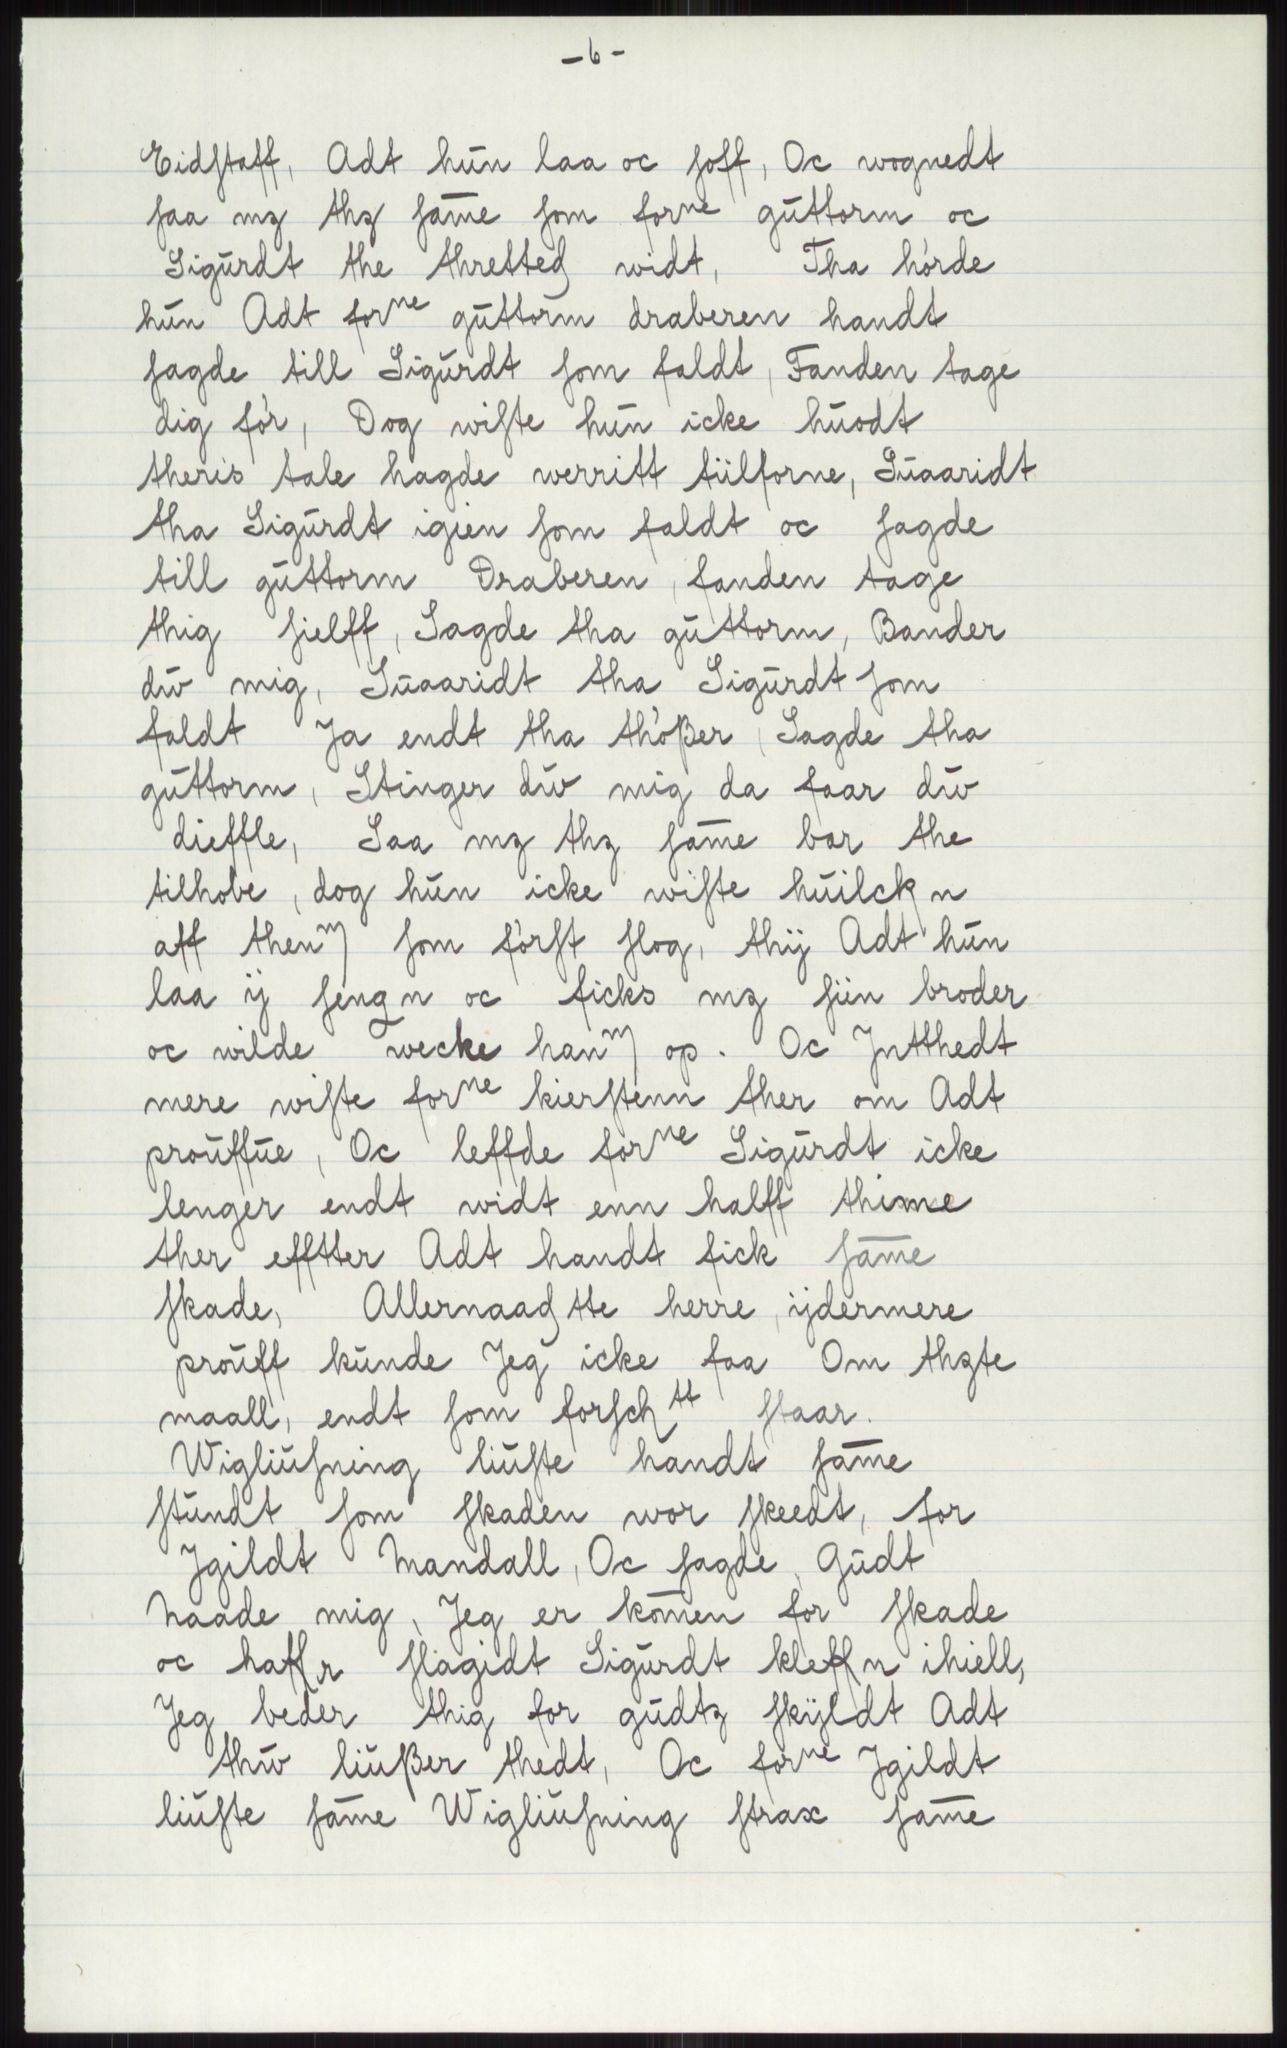 -6-
Eidſtaff, Adt hūn laa oc ſoff, Oc wognedt
ſaa mꝫ thꝫ ſāme ſom forⁿᵉ gūttorm oc
Sigūrdt the thretteꝭ widt, Tha hórde
hūn Adt forⁿᵉ gūttorm draberen handt
ſagde till Sigūrdt ſom faldt, Fanden tage
dig fór, Dog wiſte hūn icke hūodt
theris tale hagde werritt tiilforne, Sūaaridt
tha Sigūrdt igien ſom faldt oc ſagde
till gūttorm Draberen, fanden tage
thig ſielff, Sagde tha gūttorm, Bander
dw̄ mig, Sūaaridt tha Sigūrdt ſom
faldt Ja endt tha thóßer, Sagde tha
gūttorm, Stinger dw̄ mig da faar dw̄
dieffle, Saa mꝫ thꝫ ſāme bar the
tilhobe, dog hūn icke wiſte hūilckn
aff thenᵐ ſom fórſt ſlog, thÿ Adt hūn
laa ÿ ſengn oc ficks mꝫ ſiin broder
oc wilde wecke hanᵐ op. Oc Jntthedt
mere wiſte forⁿᵉ kierſtenn ther om Adt
proūffūe, Oc leffde forⁿᵉ Sigūrdt icke
lenger endt widt enn halff thime
ther efftter Adt handt fick ſāme
ſkade, Allernaadꝭtte herre, ÿdermere
proūff kūnde Jeg icke faa Om thꝫte
maall, endt ſom forſchᵗᵗ ſtaar.
Wigliūſning liūſte handt ſāme
ſtūndt ſom ſkaden wor ſkeedt, for
Jgildt Mandall, Oc ſagde, Gūdt
Naade mig, Jeg er kōmen for ſkade
oc haffr ſlagidt Sigūrdt kleffn ihiell,
Jeg beder thig for gūdtꝫ ſkÿldt Adt
thw̄ liūßer thedt, Oc forⁿᵉ Jgildt
liūſte ſāme Wigliūſning ſtrax ſāme